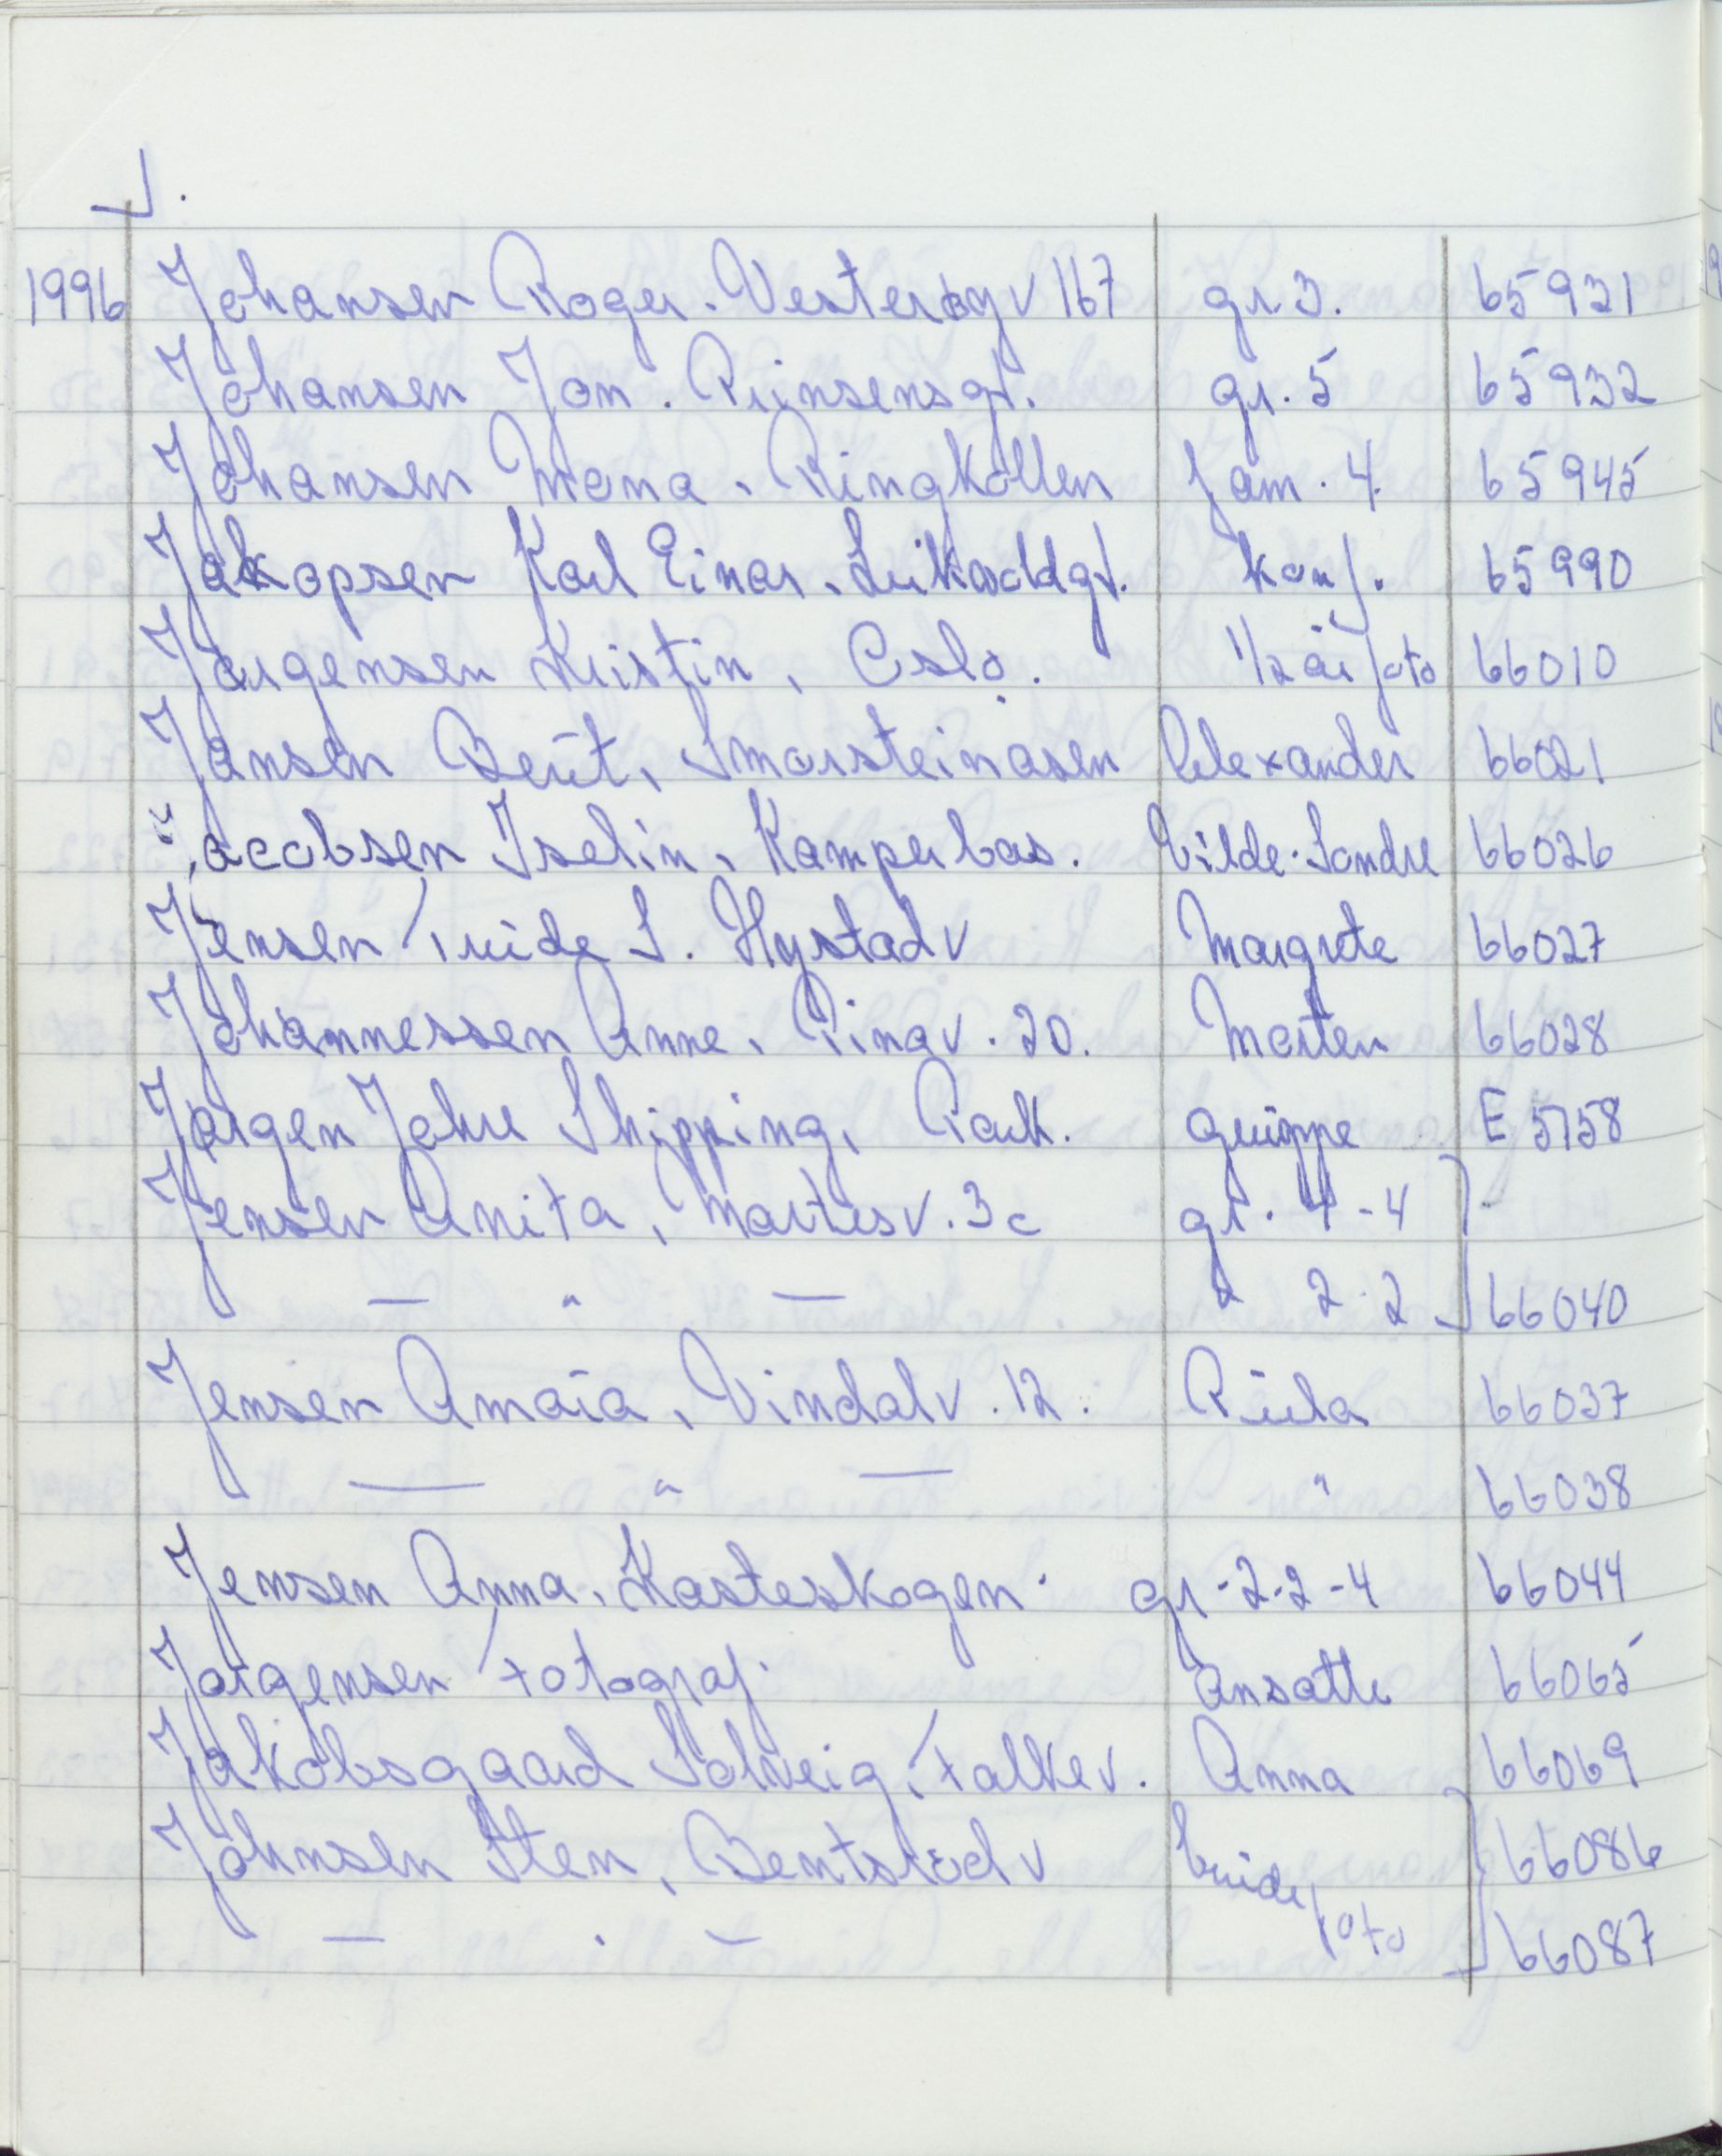 J.
1996 Johansen Roger. Vesterøyv 167 gr. 3. 65931
Johansen Jon. Prinsensgt. gr. 5 65932
Johansen Mona. Ringkollen fam. 4. 65945
Jakopsen Karl Einar. konf. 65990
Jørgensen Kristin, Oslo. 1/2 år foto 66010
Jansen Berit, Smørsteinåsen Alexander 66021
Jacobsen Iselin, Kamperbas. Vilde. Sondre 66026
Jensen Fride S. Hystadv Margrete 66027
Johannessen Anne, Ringv. 20. Morten 66028
Jørgen Jahre Shipping, Park. gruppe E 5758
Jensen Anita, Mortesv. 3c gr. 4-4
— " — 2 2.2 66040
Jensen Amaia, Vindalv. 12. 66037
— " — " 66038
Jensen Anna, Kasteskogen. gr. 2-2-4 66044
Jørgensen Fotograf. ansatte 66065
Jakobsgaard Solveig, Falkev. Anna 66069
Johnsen Sten, Bentsrødv brude 66086
— . — foto 66087